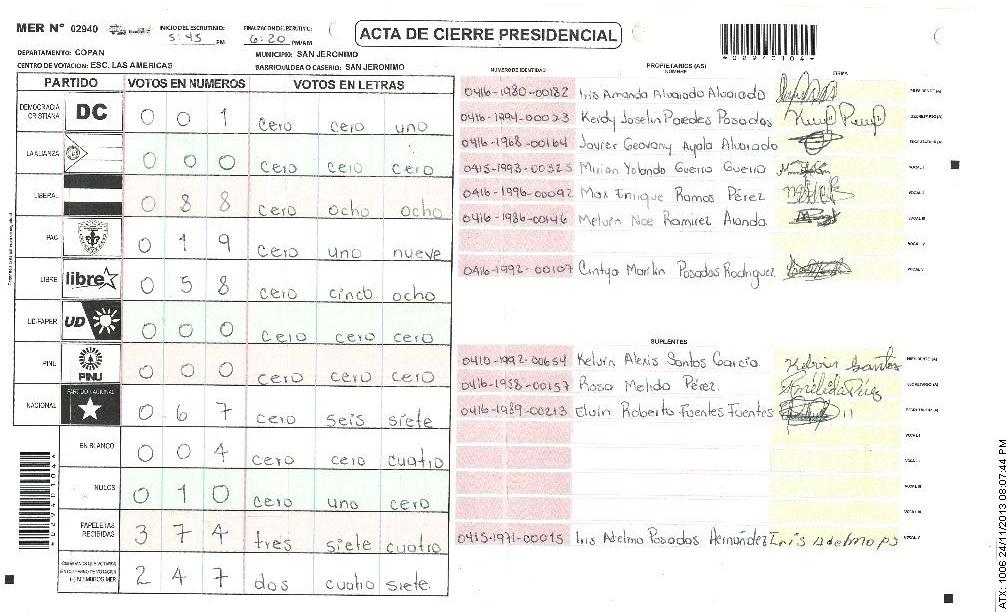 MER Nº 02940 INICIO DEL ESCRUTINIO: 5:45 PM FINALIZACION DEL ESCRUTINIO: 6:20 PM/AM
ACTA DE CIERRE PRESIDENCIAL
DEPARTAMENTO: COPAN MUNICIPIO: SAN JERONIMO
CENTRO DE VOTACION: ESC. LAS AMERICAS BARRIO/ALDEA O CASERIO: SAN JERONIMO
PARTIDO VOTOS EN NUMEROS VOTOS EN LETRAS
DEMOCRACIA CRISTIANA DC 0 0 1 cero cero uno
LA ALIANZA 0 0 0 cero cero cero
LIBERAL 0 8 8 cero ocho ocho
PAC 0 1 9 cero uno nueve
LIBRE libre 0 5 8 cero cinco ocho
UD-FAPER UD 0 0 0 cero cero cero
PINU PINU 0 0 0 cero cero cero
NACIONAL PARTIDO NACIONAL 0 6 7 cero seis siete
EN BLANCO 0 0 4 cero cero cuatro
NULOS 0 1 0 cero uno cero
PAPELETAS RECIBIDAS 3 7 4 tres siete cuatro
2 4 7 dos cuatro siete
NUMERO DE IDENTIDAD PROPIETARIOS (AS) NOMBRE FIRMA
0416-1980-00182 Iris Amanda Alvarado Alvarado PRESIDENTE (A)
0416-1994-00023 Keidy Joselin Paredes Posadas SECRETARIO (A)
0416-1968-00164 Javier Geovany Ayala Alvarado ESCRUTADOR (A)
0415-1993-00325 Mirian Yolanda Guerra Guerro VOCAL I
0416-1996-00092 Max Enrique Ramos Pérez VOCAL II
0416-1986-00146 Melvin Noe Ramirez VOCAL III
VOCAL IV
0416-1992-00107 Cintya Marilin Posadas Rodriguez VOCAL V
SUPLENTES
0410-1992-00654 Kelvin Alexis Santos García Kelvin Santos PRESIDENTE (A)
0416-1958-00157 Rosa Melida Pérez SECRETARIO (A)
0416-1989-00213 Elvin Roberto Fuentes Fuentes ESCRUTADOR (A)
VOCAL I
VOCAL II
VOCAL III
VOCAL IV
0415-1971-00015 Iris Adelma Posadas Hernández Iris Adelma PS VOCAL V
*02940104*
ATX: 1006 24/11/2013 08:07:44 PM